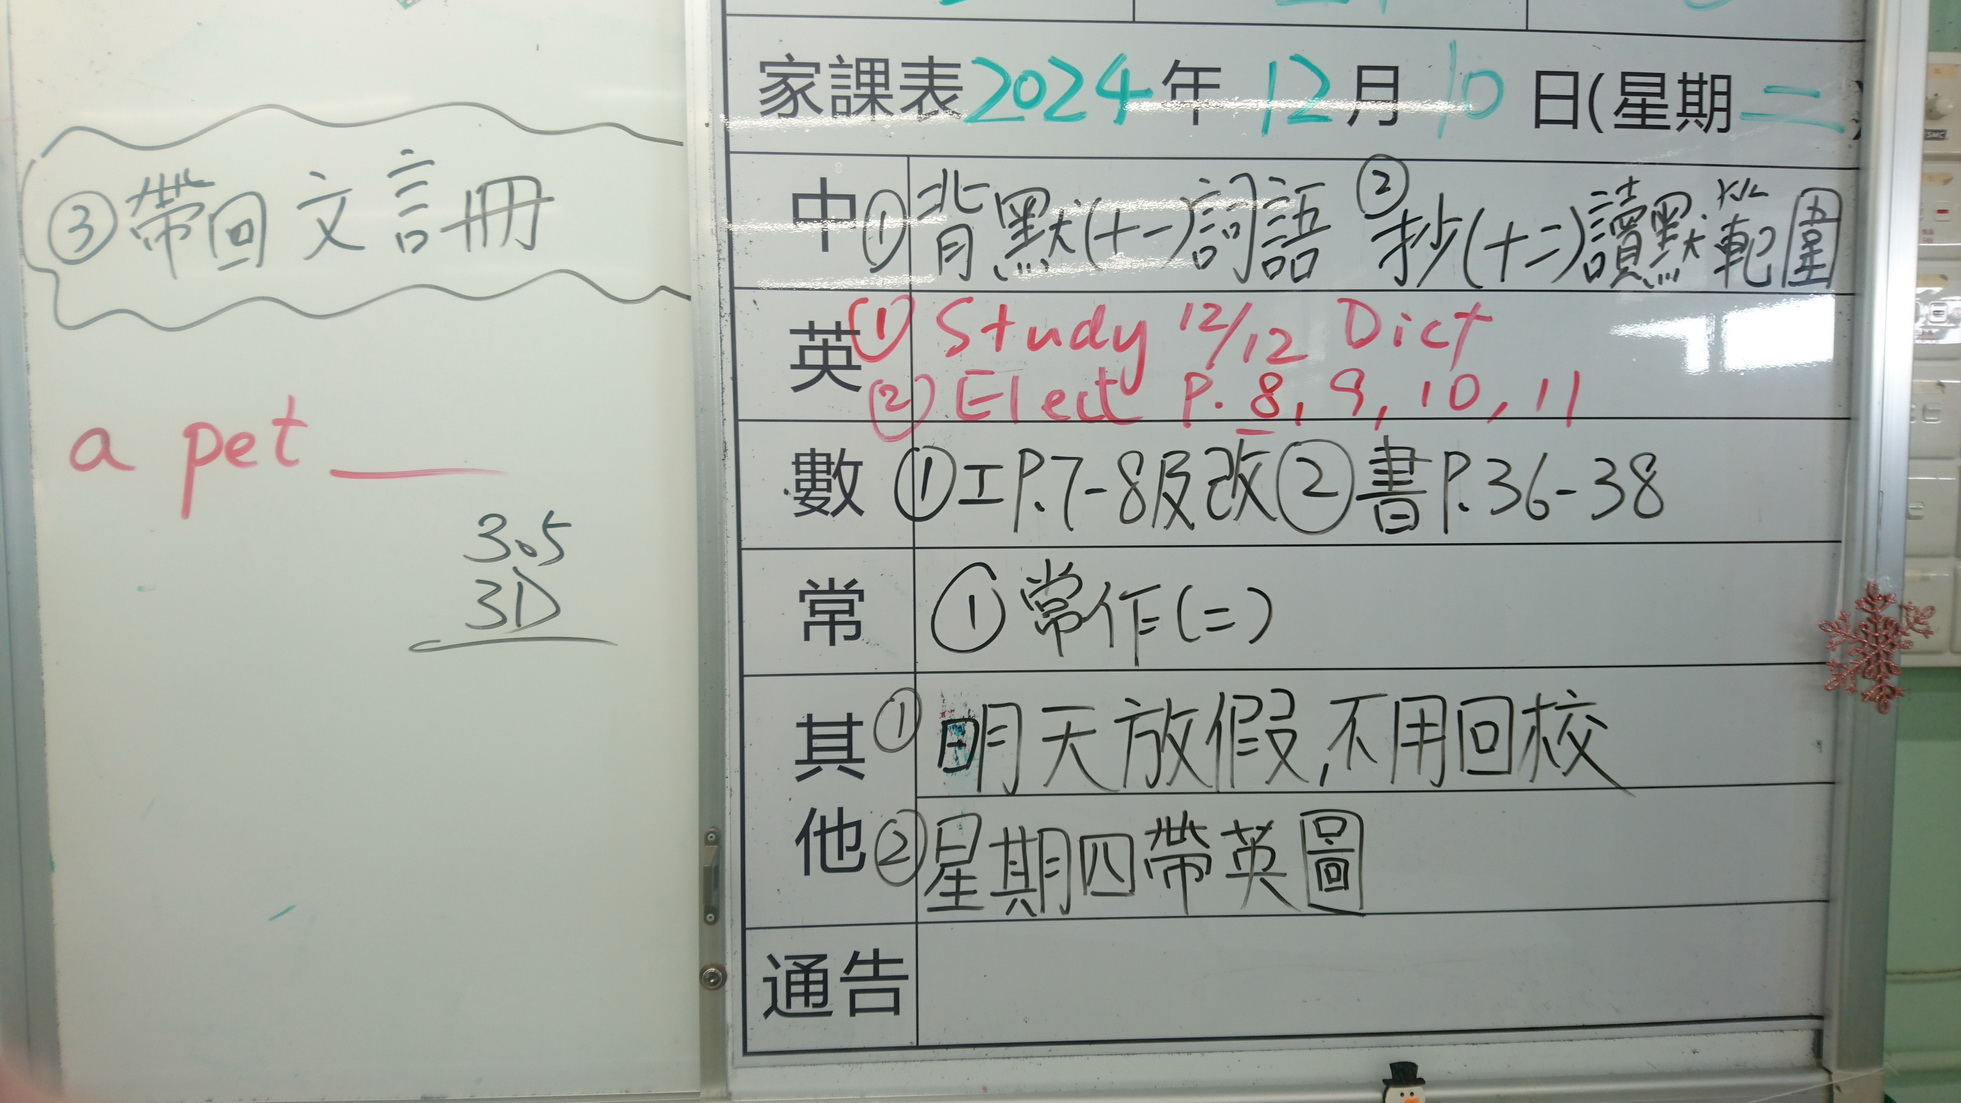 ③帶回文言冊
a pet
3.5
3D
家課表2024年12月10日(星期二)
中 ①背默(十一)詞語 ②抄(十二)讀默範圍
英 (1) Study 12/12 Dict
(2) Elect P. 8, 9, 10, 11
數 ①工P.7-8及改②書P.36-38
常 ①常作(二)
其他 ①明天放假,不用回校
②星期四帶英圖
通告